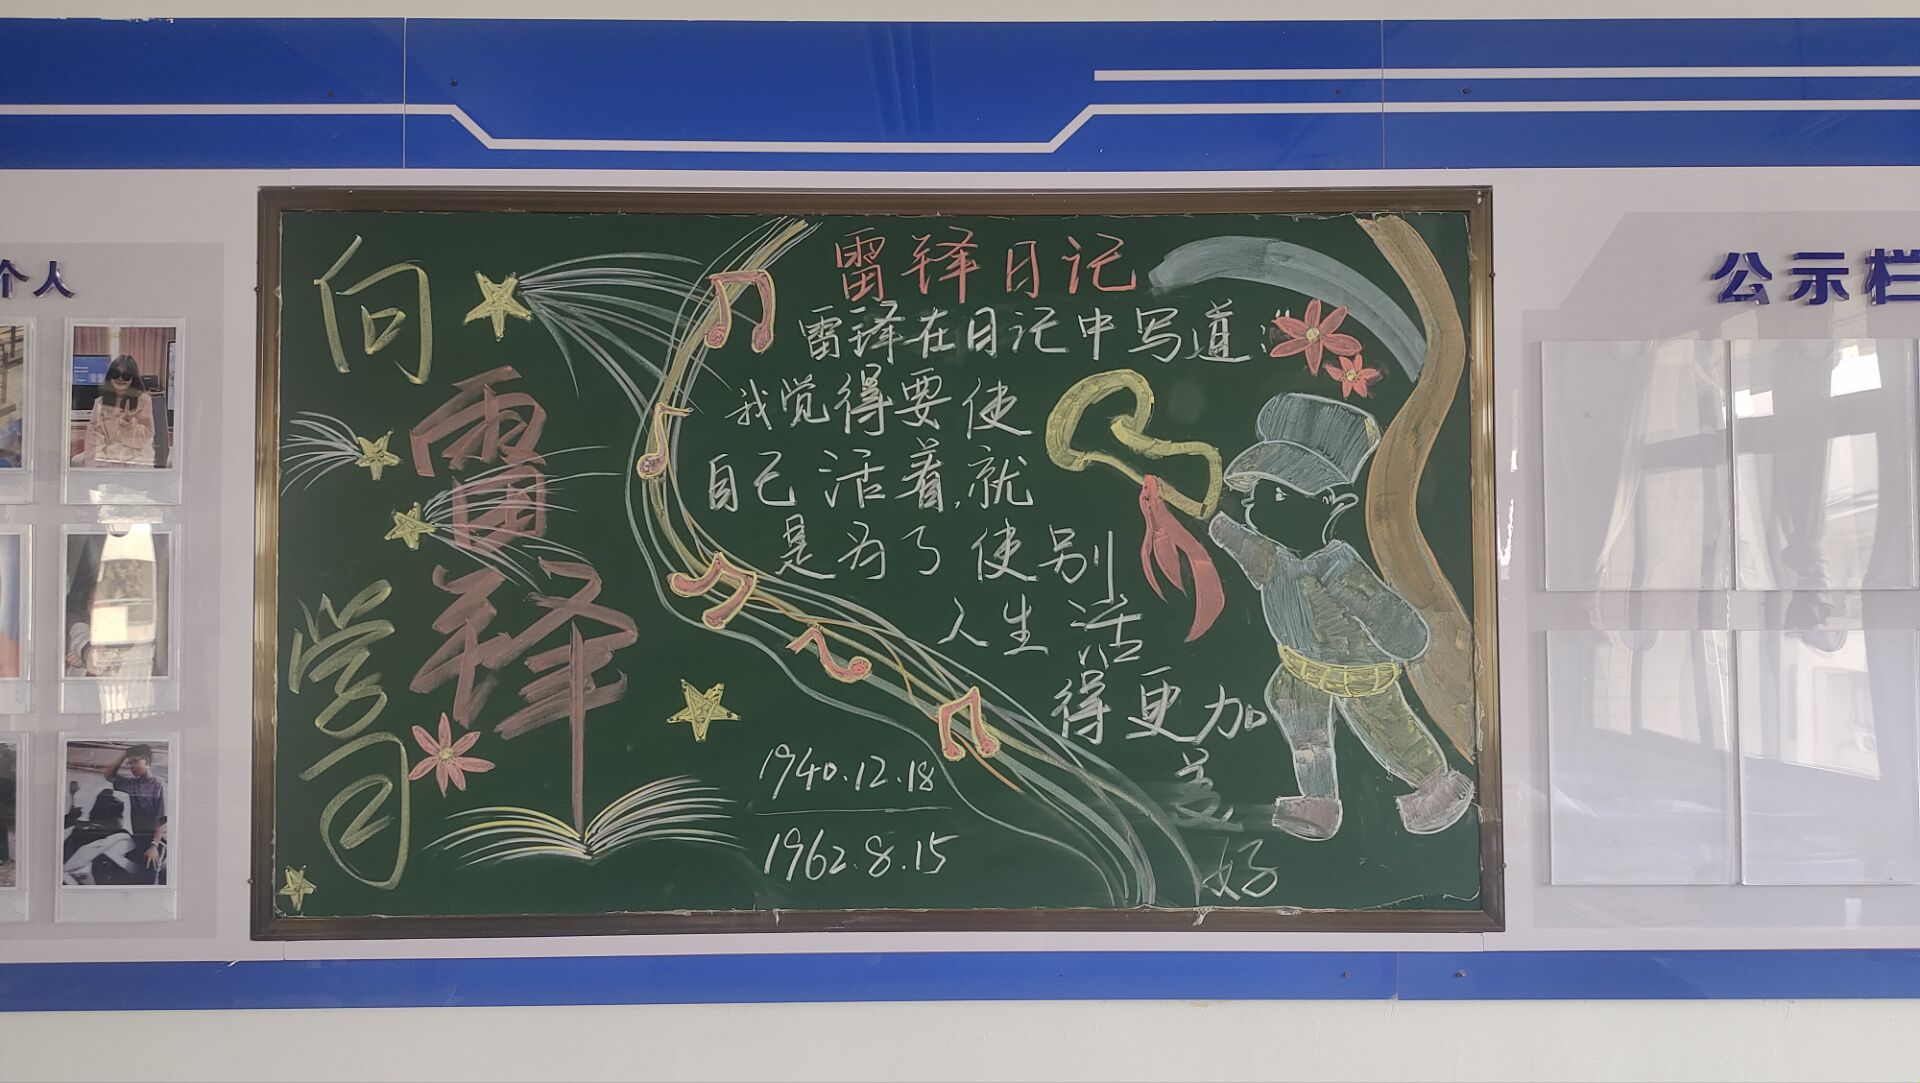 个人
向
雷锋
学习
雷锋日记
雷锋在日记中写道:“
我觉得要使
自己活着,就
是为了使别
人生活
得更加
美
好
1940.12.18
1962.8.15
公示栏